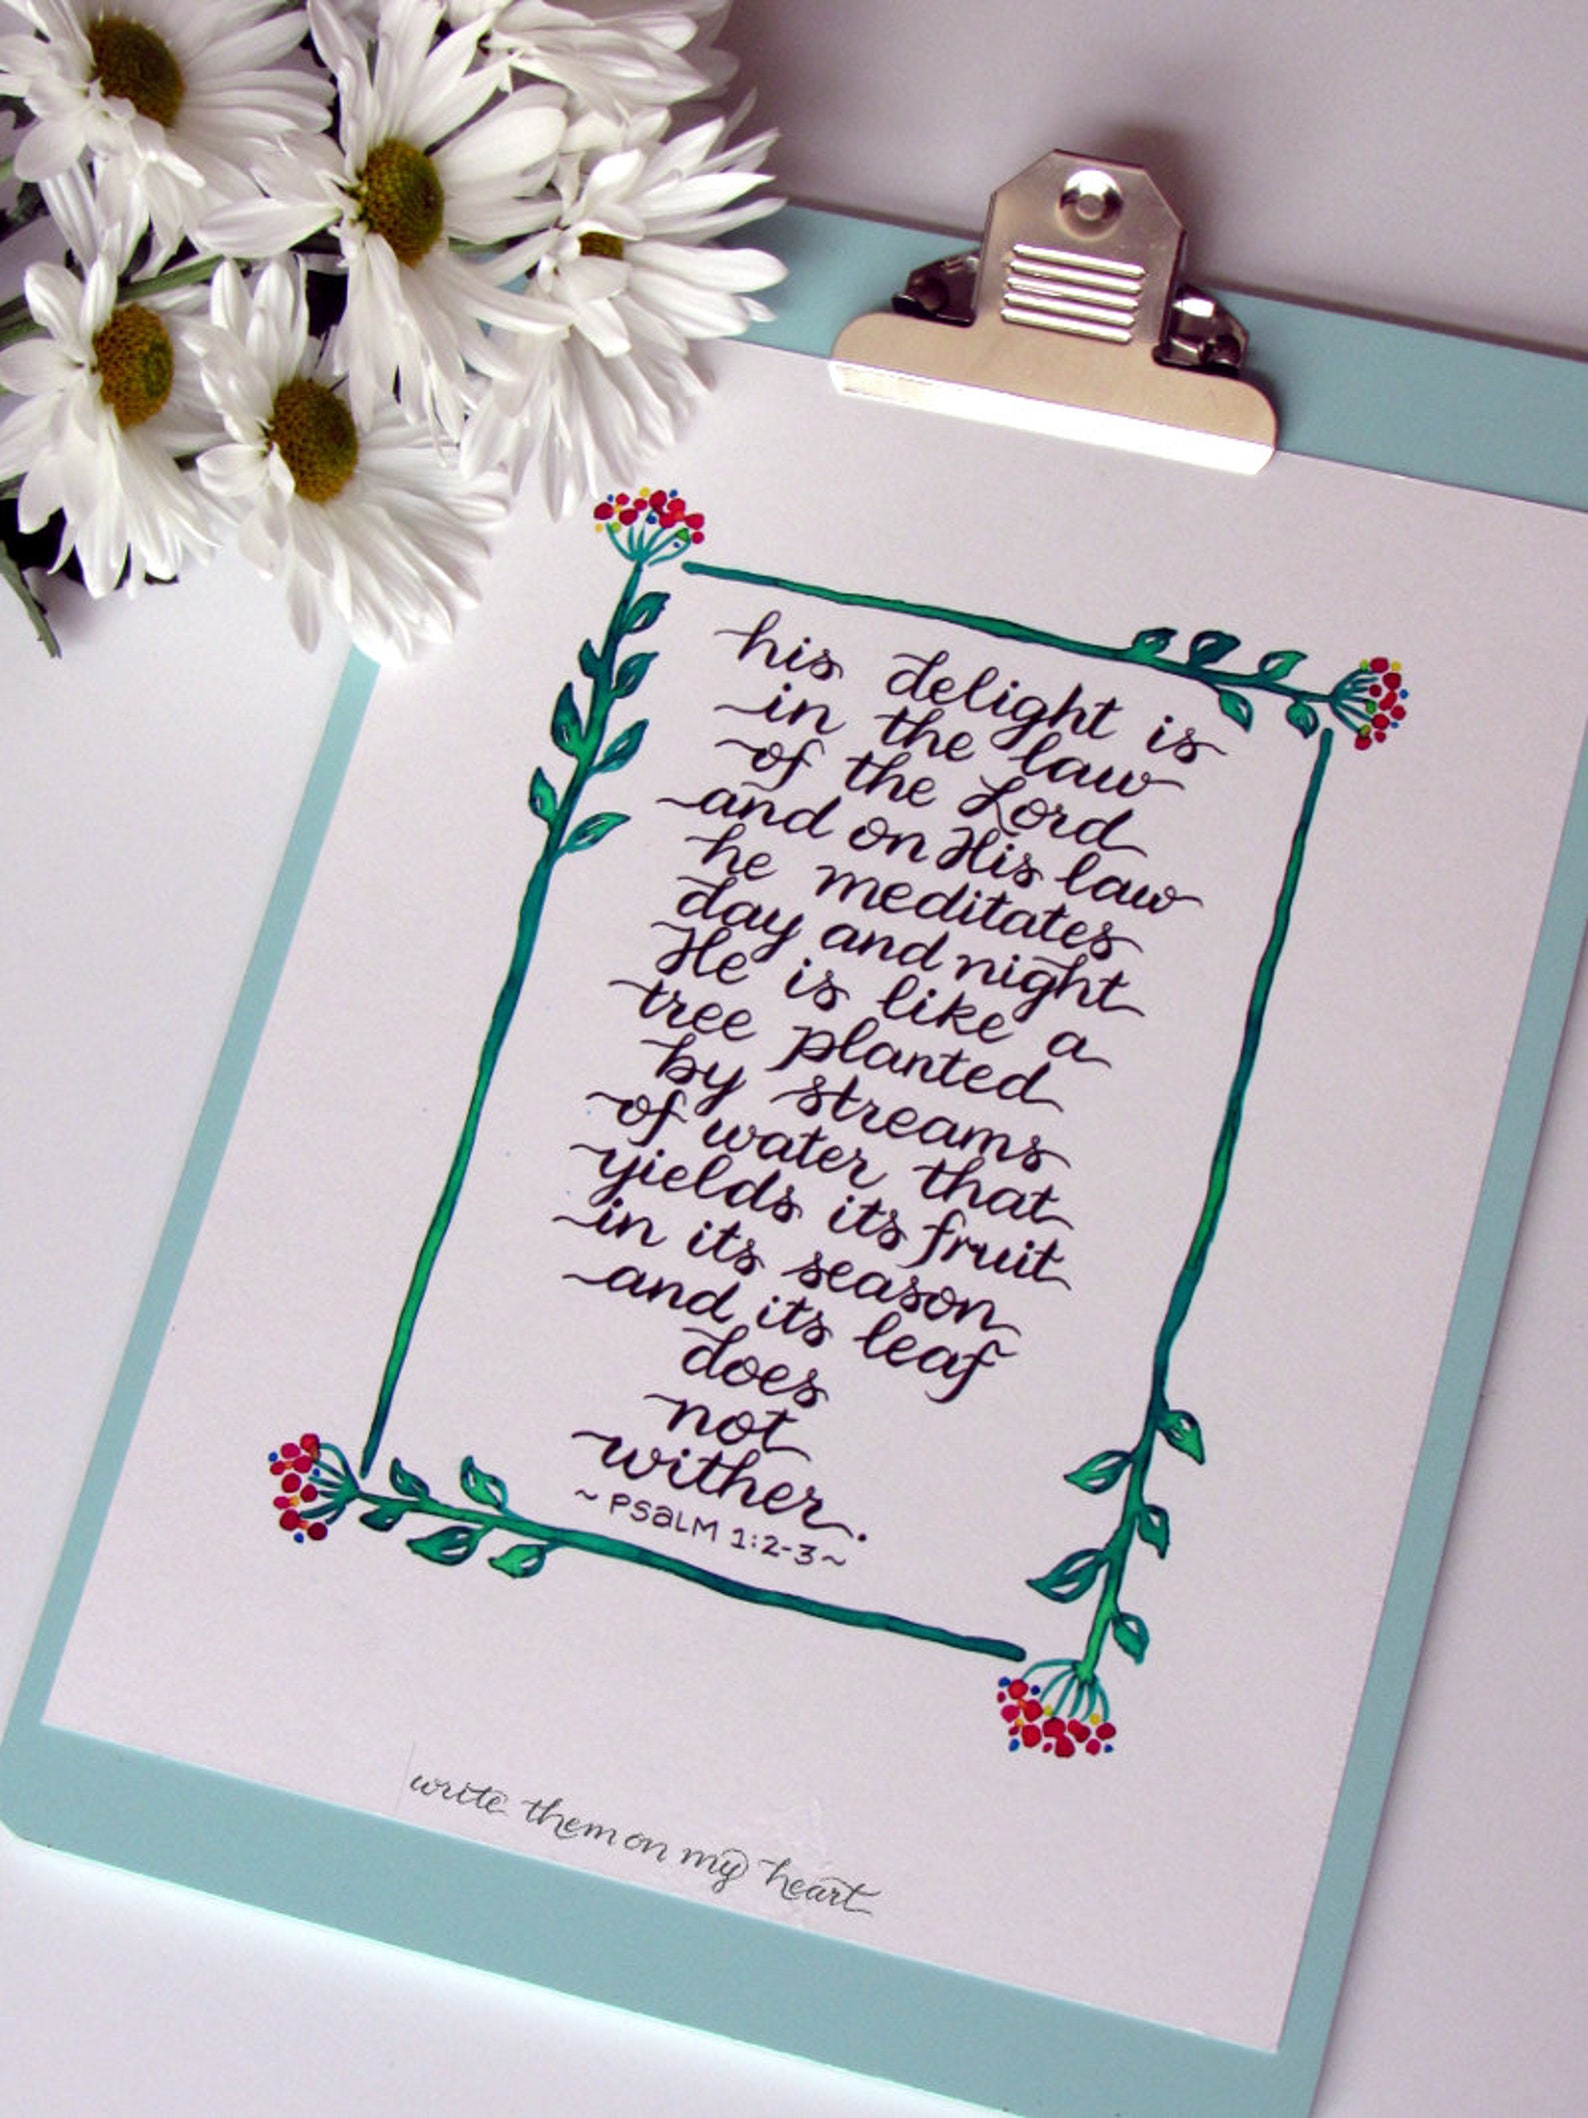 his delight is
in the law
of the Lord
and on His law
he meditates
day and night
He is like a
tree planted
by streams
of water that
yields its fruit
in its season
and its leaf
does
not
wither.
~ PSALM 1:2-3 ~
write them on my heart